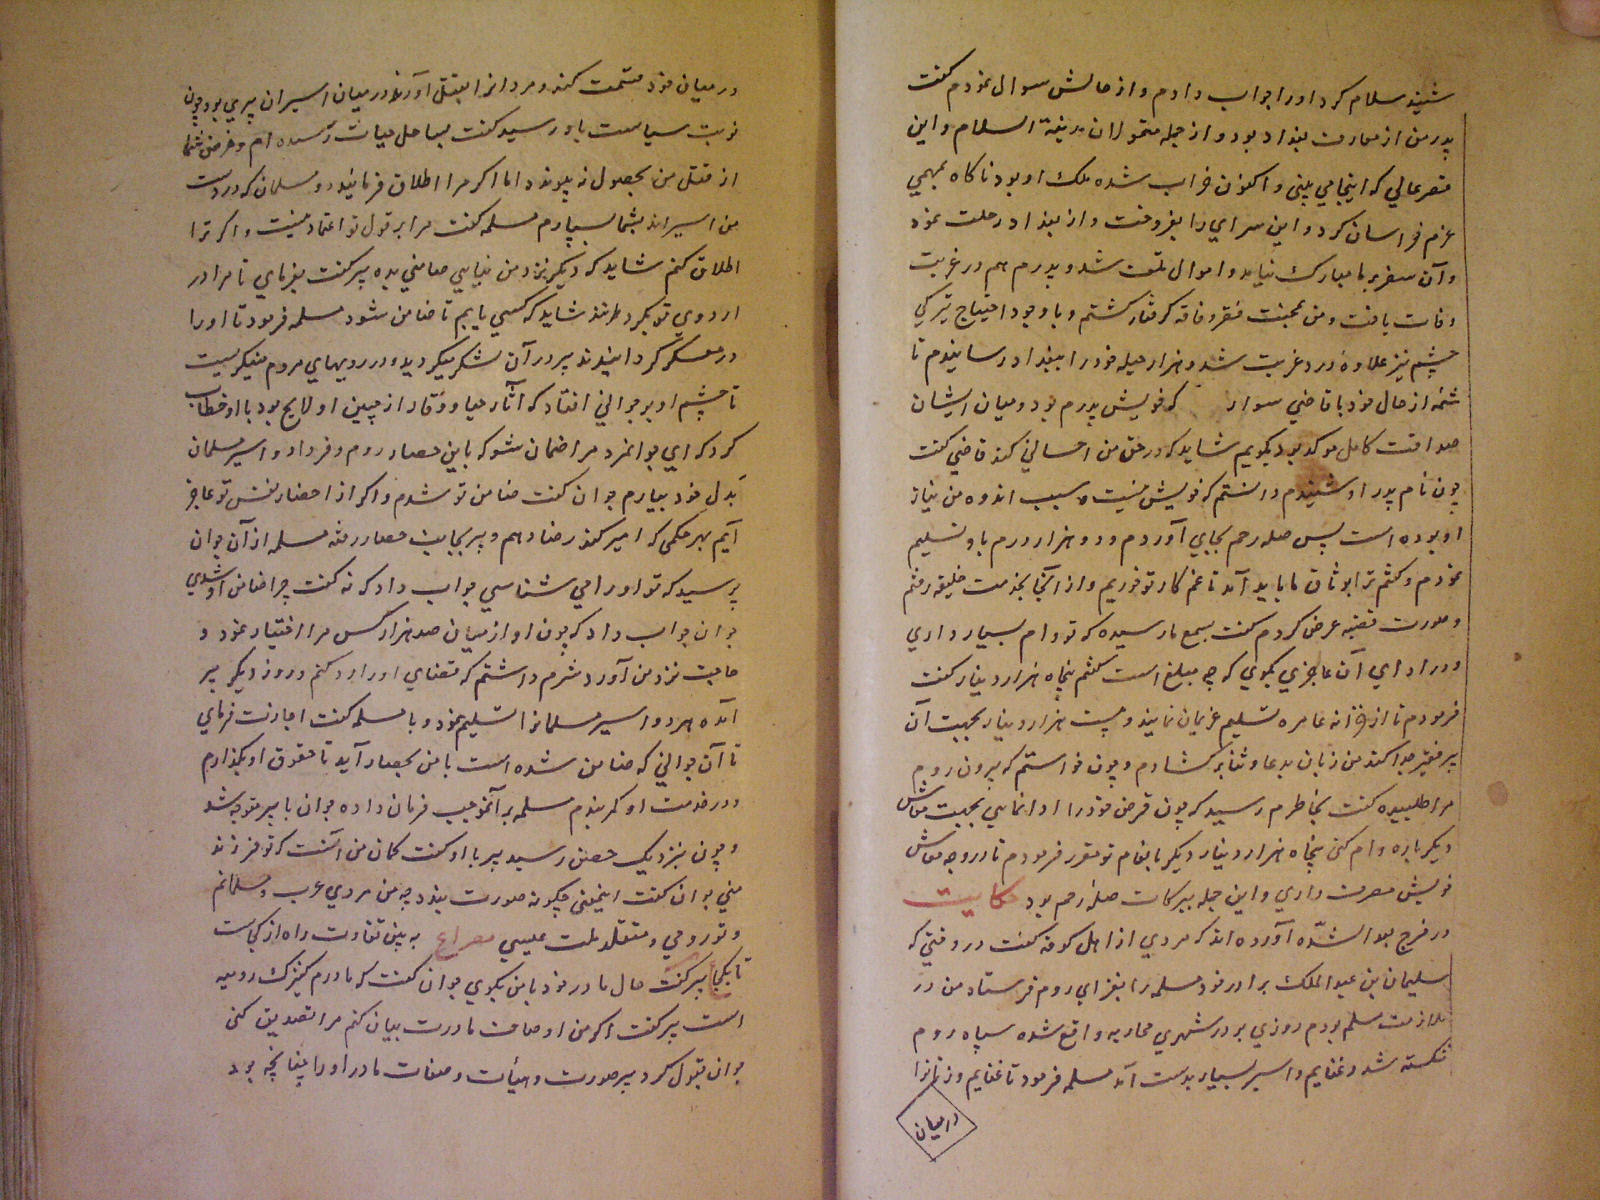 شنید سلام کرد او را جواب دادم و از حالش سوال نمودم گفت
پدر من از معارف بغداد بود و از جمله متمولان مدینة السلام و این
قصر عالی که اینجا می بینی و اکنون خراب شده ملک او بود ناکاه بمهمی
عزم خراسان کرد و این سرای را بفروخت و از بغداد رحلت نمود
و آن سفر بر ما مبارک نیامد و اموال تلف شد و پدرم هم در غربت
وفات یافت و من بمحنت فقر و فاقه گرفتار گشتم و با وجود احتیاج تیرکی
چشم نیز علاوهٔ درد غربت شد و بهزار حیله خود را ببغداد رسانیدم تا
شمهٔ از حال خود با قاضی سوار که خویش پدرم بود و میان ایشان
صداقت کامل موکد بود بکویم شاید که در حق من احسانی کند قاضی گفت
چون نام پدر او شنیدم دانستم که خویش منیست و سبب اندوه من نیاز
او بوده است پس صله رحم بجای آوردم و دو هزار درم باو تسلیم
نمودم و گفتم ترا بوثاق ما باید آمد تا غم کار تو خوریم و از آنجا بخدمت خلیفه رفتم
و صورت قضیه عرض کردم گفت بسمع ما رسیده که تو وام بسیار داری
و در ادای آن عاجزی بکوی که چه مبلغ است گفتم پنجاه هزار دینار گفت
فرمودم تا از خزانه عامره تسلیم غریمان نمایند و بیست هزار دینار بجهت آن
پیر فقیر جدا کنند من زبان بدعا و ثنا برکشادم و چون خواستم که بیرون روم
مرا طلبیده گفت بخاطرم رسید که چون قرض خود را ادا نمایی بجهت معاش
دیکر باره وام کنی پنجاه هزار دینار دیکر بانعام تو مقرر فرمودم تا در وجه معاش
خویش صرف داری و این جمله ببرکات صلهٔ رحم بود حکایت
در فرج بعد الشدّه آورده اند که مردی از اهل کوفه گفت در وقتی که
سلیمان بن عبد الملک برادر خود مسلمه را بغزای روم فرستاد من در
ملازمت مسلم بودم روزی بر در شهری محاربه واقع شده سپاه روم
شکسته شد و غنایم و اسیر بسیار بدست آمد مسلمه فرمود تا غنایم و زنانرا
در میان
در میان خود قسمت کنند و مردانرا بقتل آورند در میان اسیران پیری بود چون
نوبت سیاست باو رسید گفت بساحل حیات رسیده ام و غرض شما
از قتل من بحصول نه پیوندد اما اکر مرا اطلاق فرمایید دو مسلمان که در دست
من اسیر اند بشما بسپارم مسلمه گفت مرا بر قول تو اعتماد نیست و اکر ترا
اطلاق کنم شاید که دیکر نزد من نیایی ضامنی بده پیر گفت بفرمای تا مرا در
اردوی تو بکردانند شاید که کسی یابم تا ضامن شود مسلمه فرمود تا او را
در معسکر کردانیدند پیر در آن لشکر میکردید و در رویهای مردم مینکریست
تا چشم او بر جوانی افتاد که آثار حیا و وقار از جبین او لایح بود با او خطاب
کرد که ای جوانمرد مرا ضمان شو که باین حصار روم و فردا دو اسیر مسلمان
بَدل خود بیارم جوان گفت ضامن تو شدم و اکر از احضار نفس تو عاجز
آیم بهر حکمی که امیر کند رضا دهم و پیر بجانب حصار رفته مسلمه از آن جوان
پرسید که تو او را می شناسی جواب داد که نه گفت چرا ضامن او شدی
جوان جواب داد که چون او از میان صد هزار کس مرا اختیار نمود و
حاجت نزد من آورد شرم داشتم که تمنای او را رد کنم و روز دیکر پیر
آمده هر دو اسیر مسلمانرا تسلیم نمود و با مسلمه گفت اجازت فرمای
تا آن جوانی که ضامن شده است با من بحصار آید تا حقوق او بکذارم
و در خدمت او کمر بندم مسلمه بر آنموجب فرمان داده جوان با پیر متوجه شد
و چون بنزدیک حصن رسید پیر با او گفت کمان من آنست که تو فرزند
منی جوان گفت اینمعنی چکونه صورت بندد چه من مردی عرب و مسلمانم
و تو رومی و متقلد ملت عیسی مصراع به بین تفاوت راه از کجاست
تا بکجا پیر گفت حال مادر خود با من بکوی جوان گفت که مادرم کنیزک رومیه
است پیر گفت اکر من اوصاف مادرت بیان کنم مرا تصدیق کنی
جوان قبول کرد پیر صورت و هیأت و صفات مادر او را چنانچه بود